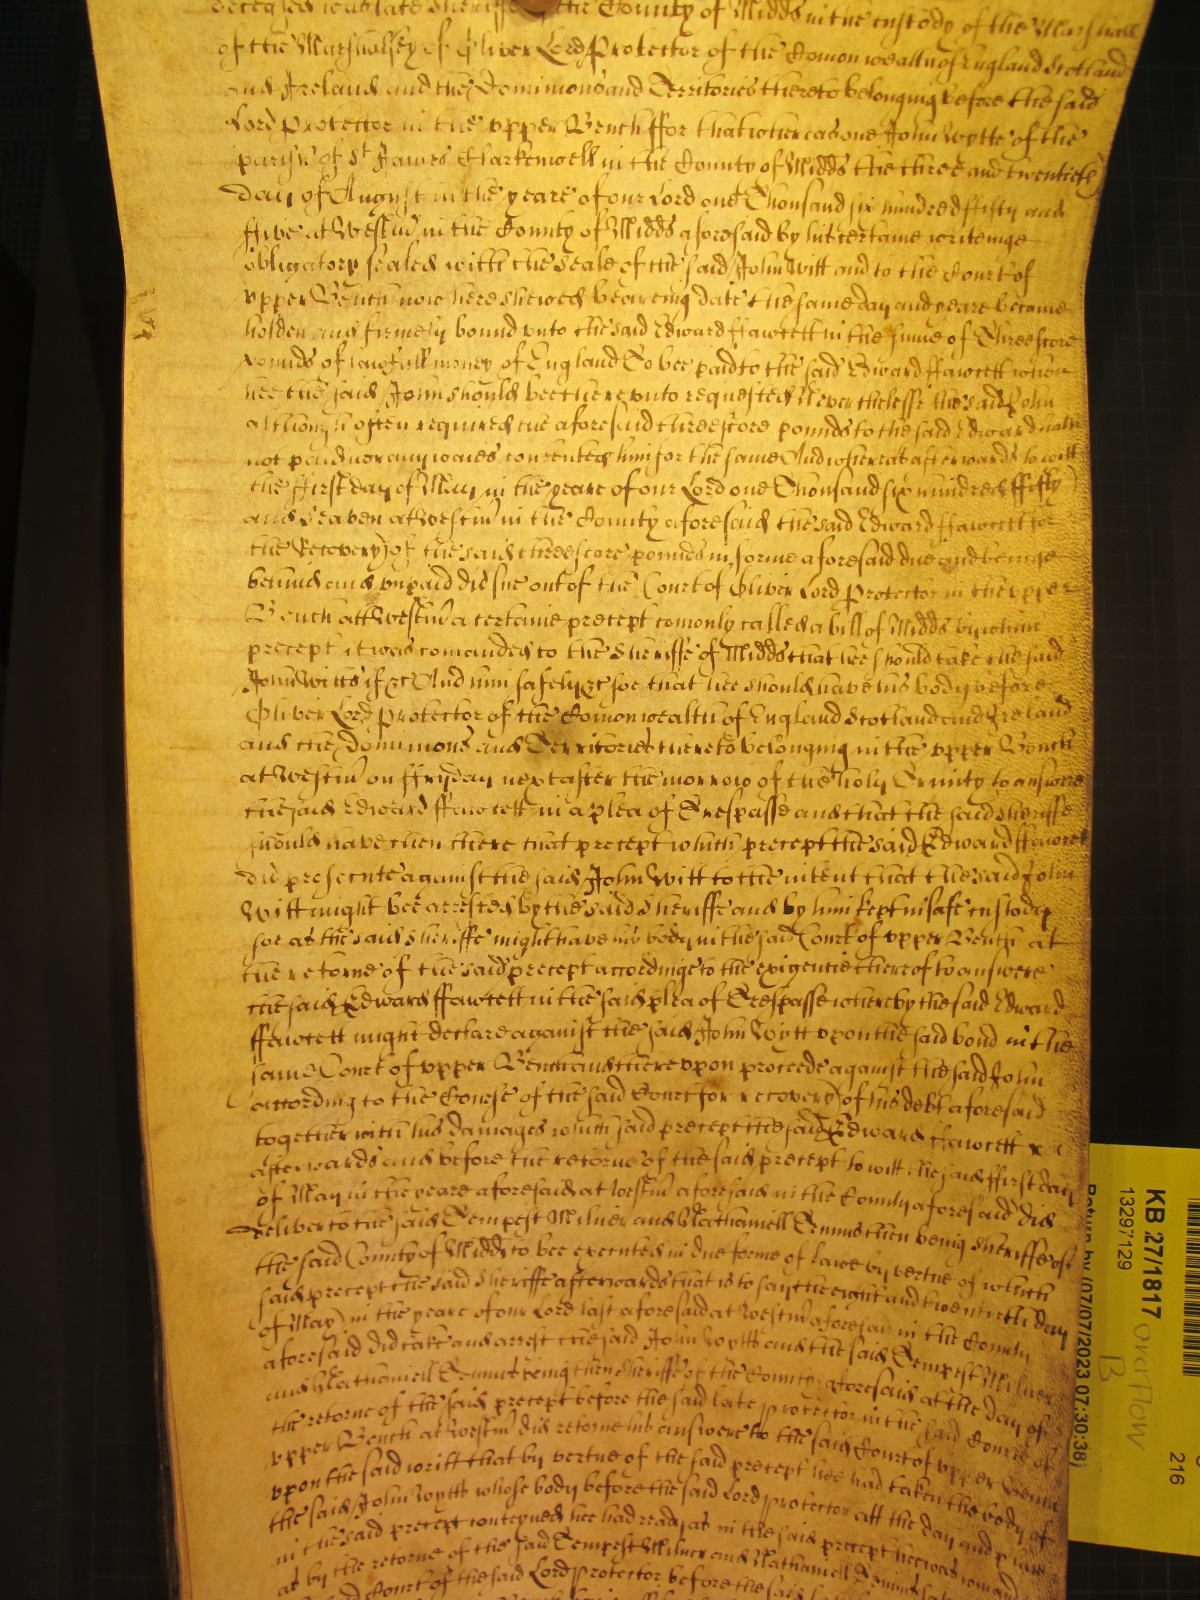 deceased late Sheriffe of the County of Midds in the custody of the Marshall
of the Marshalsey of Oliver Lord Protector of the Comonwealth of England Scotland
and Ireland and the Dominions and Territories thereto belonging before the said
Lord Protector in the upper Bench ffor that whereas one John Wytte of the
parish of St James Clarkenwell in the County of Midds the three and twentieth
day of August in the yeare of our Lord one Thousand six hundred ffifty and
ffive at Westm in the County of Midds aforesaid by his certaine writeinge
obligatory sealed with the Seale of the said John Witt and to the Court of
upper Bench now here shewed beareing date the same day and yeare became
holden and firmely bound unto the said Edward ffawcett in the Sume of Threescore
pounds of lawfull money of England To bee paid to the said Edward ffawcett when
hee the said John should bee thereunto requested Neverthelesse the said John
although often required the aforesaid threescore pounds to the said Edward hath
not paid nor any waies contented him for the same And whereas afterwards to witt
the ffirst day of May in the yeare of our Lord one Thousand six hundred ffifty
and Seaven at Westm in the County aforesaid the said Edward ffawcett for
the Recovery of the said threescore pounds in forme aforesaid due and beinge
behind and unpaid did sue out of the Court of Oliver Lord Protector in the upper
Bench att Westm a certaine precept comonly called a bill of Midds by which
precept it was comanded to the Sheriffe of Midds that hee should take the said
John Witts if &c And him safely &c soe that hee should have his body before
Oliver Lord Protector of the Comonwealth of England Scotland and Ireland
and the Dominions and Territories thereto belonging in the upper Bench
at Westm on ffryday next after the morrow of the holy Trinity to answere
the said Edward ffawcett in a plea of Trespasse and that the said Sheriffe
should have then there that precept which precept the said Edward ffawcett
did prosecute against the said John Witt to the intent that the said John
Witt might bee arrested by the said Sheriffe and by him kept in safe custody
soe as the said Sheriffe might have his body in the said Court of upper Bench at
the retorne of the said precept accordinge to the exigencie thereof to answere
the said Edward ffawcett in the said plea of Trespasse whereby the said Edward
ffawcett might declare against the said John Wytt upon the said bond in the
same Court of upper Bench and thereupon proceede against the said John
according to the Course of the said Court for recovery of his debt aforesaid
together with his damages which said precept the said Edward ffawcett
afterwards and before the retorne of the said precept to witt the said ffirst day
of May in the yeare aforesaid at Westm aforesaid in the County aforesaid did
deliver to the said Tempest Milner and Nathaniell Temms then being Sheriffe of
the said County of Midds to bee executed in due forme of lawe by vertue of which
said precept the said Sheriffe afterwards that is to say the eight and twentieth day
of May in the yeare of our Lord last aforesaid at Westm aforesaid in the County
aforesaid did take and arrest the said John Wytts and the said Tempest Milner
and Nathaniell Temms being then Sheriffe of the County aforesaid at the day of
the retorne of the said precept before the said late Protector in the said Court of
upper Bench at Westm did retorne his answere to the said Court of upper Bench
upon the said writt that by vertue of the said precept hee had taken the body of
the said John Wytts whose body before the said Lord Protector att the day and place
in the said precept conteyned hee had ready as in the said precept hee was comanded
as by the retorne of the said Tempest Milner and Nathaniell Temms
Court of the said Lord Protector before the said
KB 27/1817
13297129
overflow
B
216
Return by (07/07/2023 07:30:38)